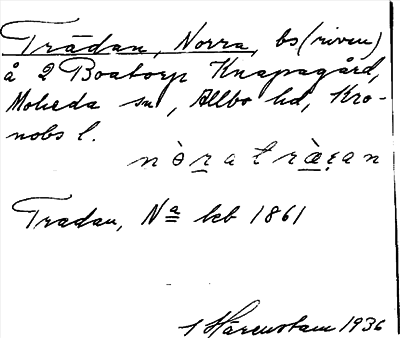 Trädan, Norra, bs (riven)
å 2 Boatorp Knapagård,
Moheda sn, Allbo hd, Kro-
nobs l.
nò̱ra tràęan
Tradan, Nª hlb 1861
Härenstam 1936